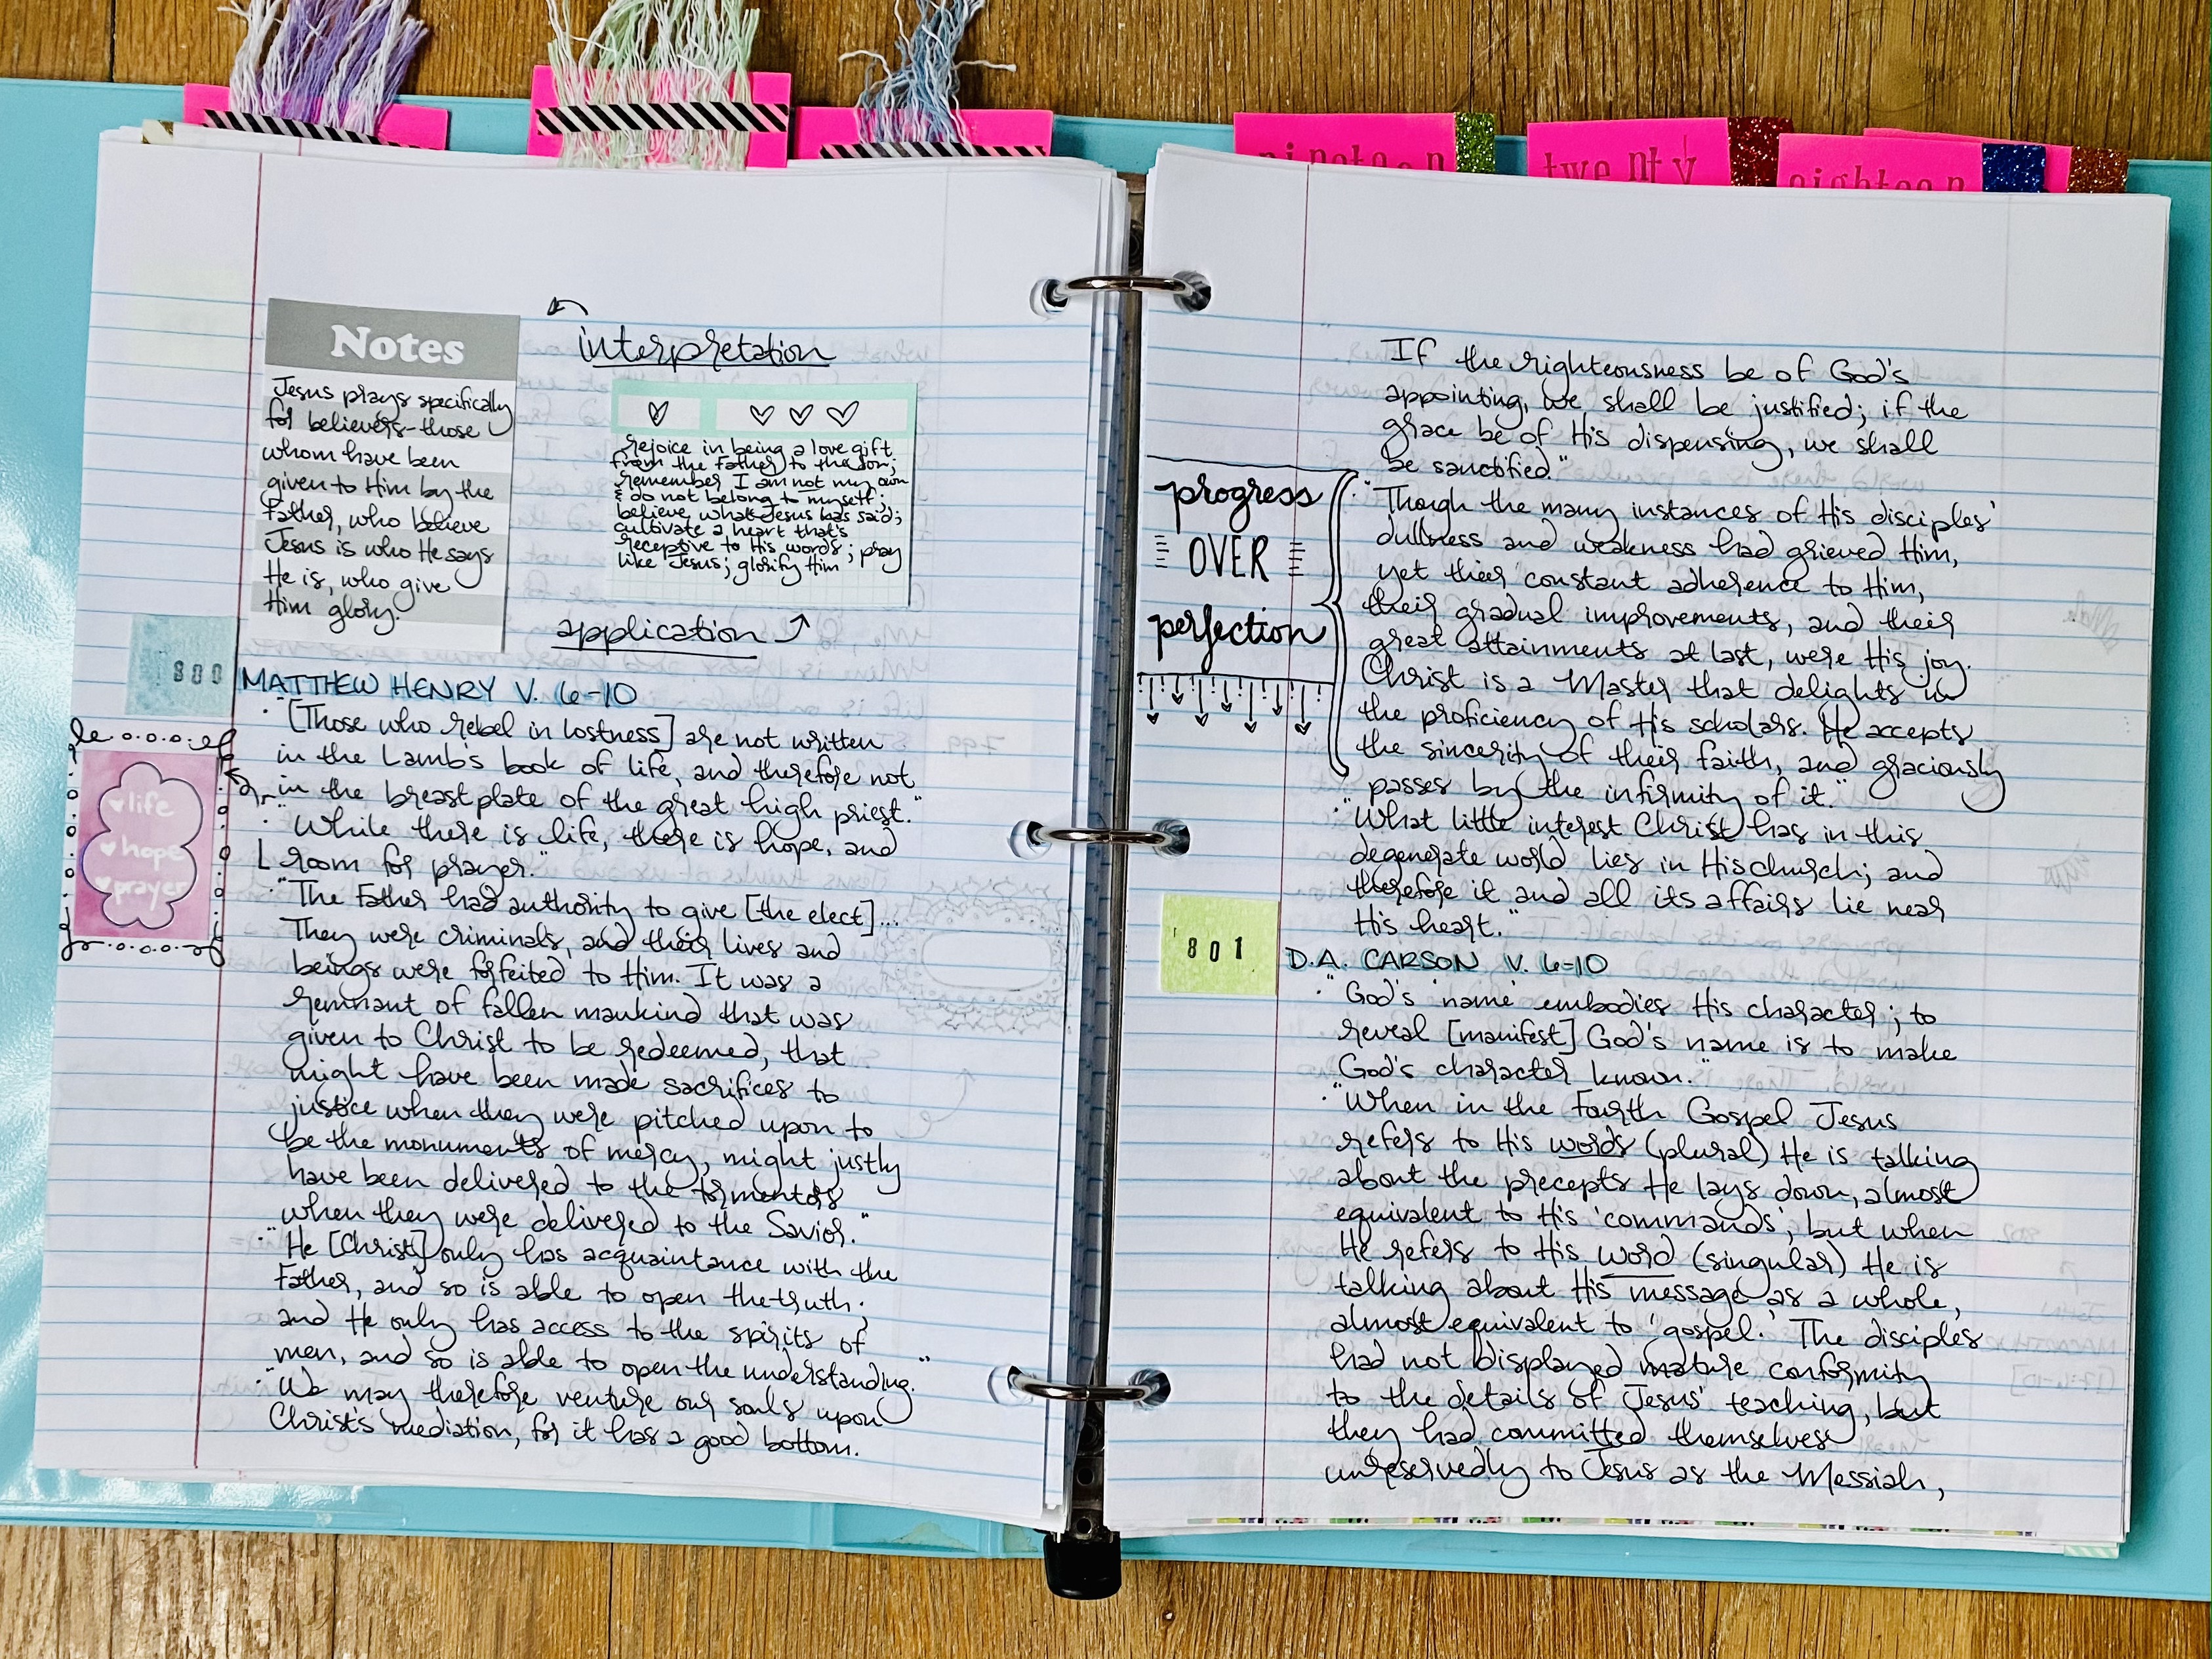 nineteen
twenty
eighteen
Notes
Jesus prays specifically
for believers-those
whom have been
given to Him by the
Father, who believe
Jesus is who He says
He is, who give
Him glory.
interpretation
rejoice in being a love gift
from the Father to the Son;
remember I am not my own
& do not belong to myself;
believe what Jesus has said;
cultivate a heart that's
receptive to His words; pray
like Jesus; glorify Him
application
800
MATTHEW HENRY V. 6-10
"[Those who rebel in lostness] are not written
in the Lamb's book of life, and therefore not
in the breastplate of the great high priest."
"While there is life, there is hope, and
room for prayer."
life
hope
prayer
"The Father had authority to give [the elect]...
They were criminals, and their lives and
beings were forfeited to Him. It was a
remnant of fallen mankind that was
given to Christ to be redeemed, that
might have been made sacrifices to
justice when they were pitched upon to
be the monuments of mercy, might justly
have been delivered to the tormentors
when they were delivered to the Savior."
"He [Christ] only has acquaintance with the
Father, and so is able to open the truth;
and He only has access to the spirits of
men, and so is able to open the understanding."
"We may therefore venture our souls upon
Christ's mediation, for it has a good bottom.
If the righteousness be of God's
appointing, we shall be justified; if the
grace be of His dispensing, we shall
be sanctified."
progress
OVER
perfection
"Though the many instances of His disciples'
dullness and weakness had grieved Him,
yet their constant adherence to Him,
their gradual improvements, and their
great attainments at last, were His joy.
Christ is a Master that delights in
the proficiency of His scholars. He accepts
the sincerity of their faith, and graciously
passes by the infirmity of it."
"What little interest Christ has in this
degenerate world lies in His church; and
therefore it and all its affairs lie near
His heart."
801
D.A. CARSON V. 6-10
"God's 'name' embodies His character; to
reveal [manifest] God's name is to make
God's character known."
"When in the Fourth Gospel Jesus
refers to His words (plural) He is talking
about the precepts He lays down, almost
equivalent to His 'commands'; but when
He refers to His word (singular) He is
talking about His message as a whole,
almost equivalent to 'gospel.' The disciples
had not displayed mature conformity
to the details of Jesus' teaching, but
they had committed themselves
unreservedly to Jesus as the Messiah,